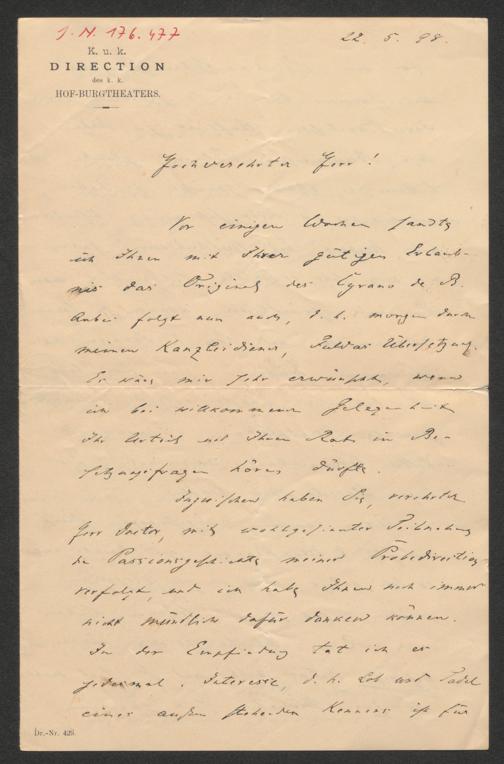 J. N. 176.477
22. 5. 98.
K. u. k.
DIRECTION
des k. k.
HOF-BURGTHEATERS.
Hochverehrter Herr!
Vor einigen Wochen sandte
ich Ihnen mit Ihrer gütigen Erlaub-
nis das Original des Cyrano de B.
Anbei folgt nun auch, d. h. morgen durch
meinen Kanzleidiener, Fuldas Übersetzung.
Es wäre mir sehr erwünscht, wenn
ich bei willkommener Gelegenheit
Ihr Urteil und Ihren Rat in Be-
setzungsfragen hören dürfte.
Inzwischen haben Sie, verehrter
Herr Doctor, mit wohlgesinnter Teilnahme
die Passionsgeschichte meiner Probedirection
verfolgt, und ich habe Ihnen noch immer
nicht mündlich dafür danken können.
In der Empfindung tat ich es
jedesmal. Interesse, d. h. Lob und Tadel
eines außen stehenden Kenners ist für
Dr.-Nr. 428.